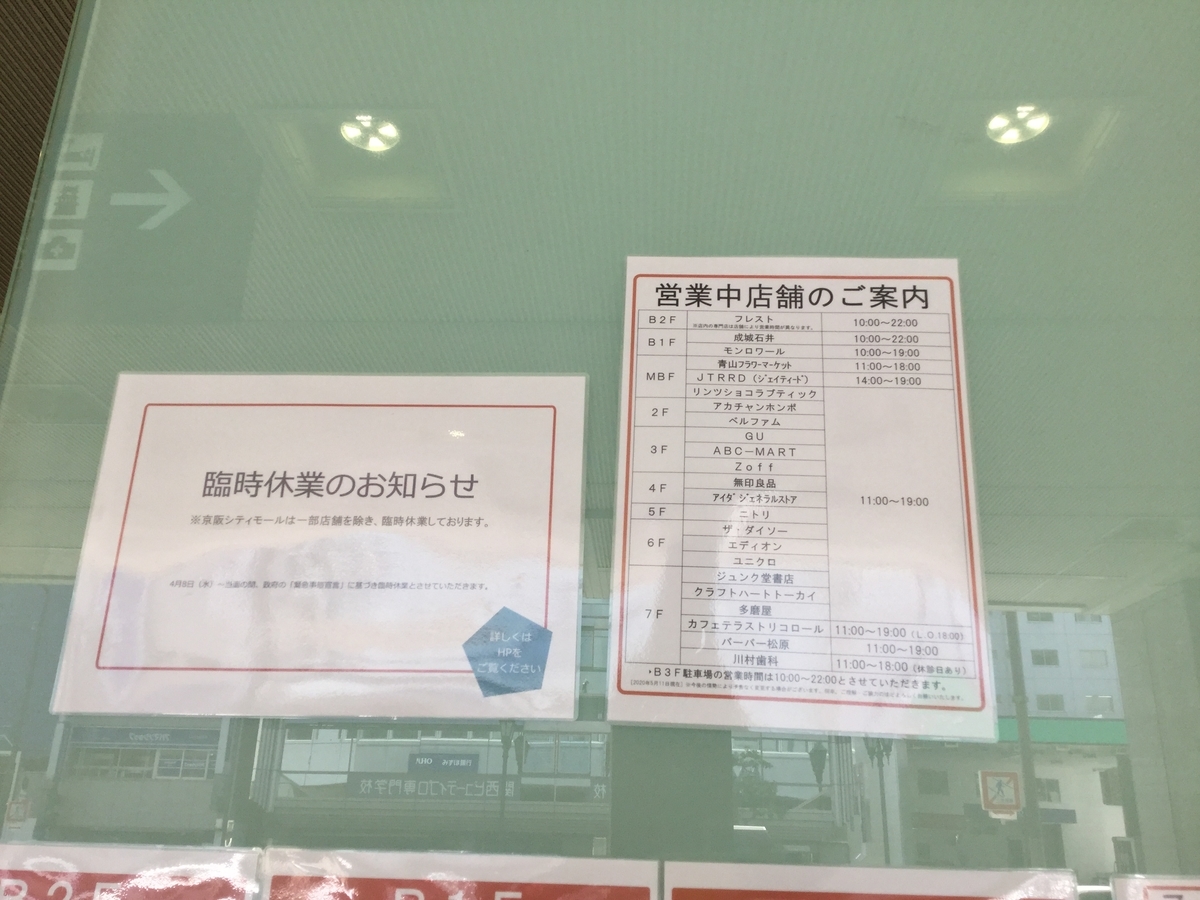 臨時休業のお知らせ
※京阪シティモールは一部店舗を除き、臨時休業しております。
4月8日（水）～当面の間、政府の「緊急事態宣言」に基づき臨時休業とさせていただきます。
詳しくは
HPを
ご覧ください
営業中店舗のご案内
B2F フレスト 10:00～22:00
※店内の専門店は店舗により営業時間が異なります。
B1F 成城石井 10:00～22:00
モンロワール 10:00～19:00
MBF 青山フラワーマーケット 11:00～18:00
JTRRD（ジェイティード） 14:00～19:00
リンツショコラブティック
2F アカチャンホンポ
ベルファム
3F GU
ABC－MART
Zoff
4F 無印良品
アイダジェネラルストア 11:00～19:00
5F ニトリ
6F ザ・ダイソー
エディオン
ユニクロ
7F ジュンク堂書店
クラフトハートトーカイ
多磨屋
カフェテラストリコロール 11:00～19:00（L.O.18:00）
バーバー松原 11:00～19:00
川村歯科 11:00～18:00（休診日あり）
・B3F駐車場の営業時間は10:00～22:00とさせていただきます。
みずほ銀行
関西ビューティプロ専門学校
B2F
B1F